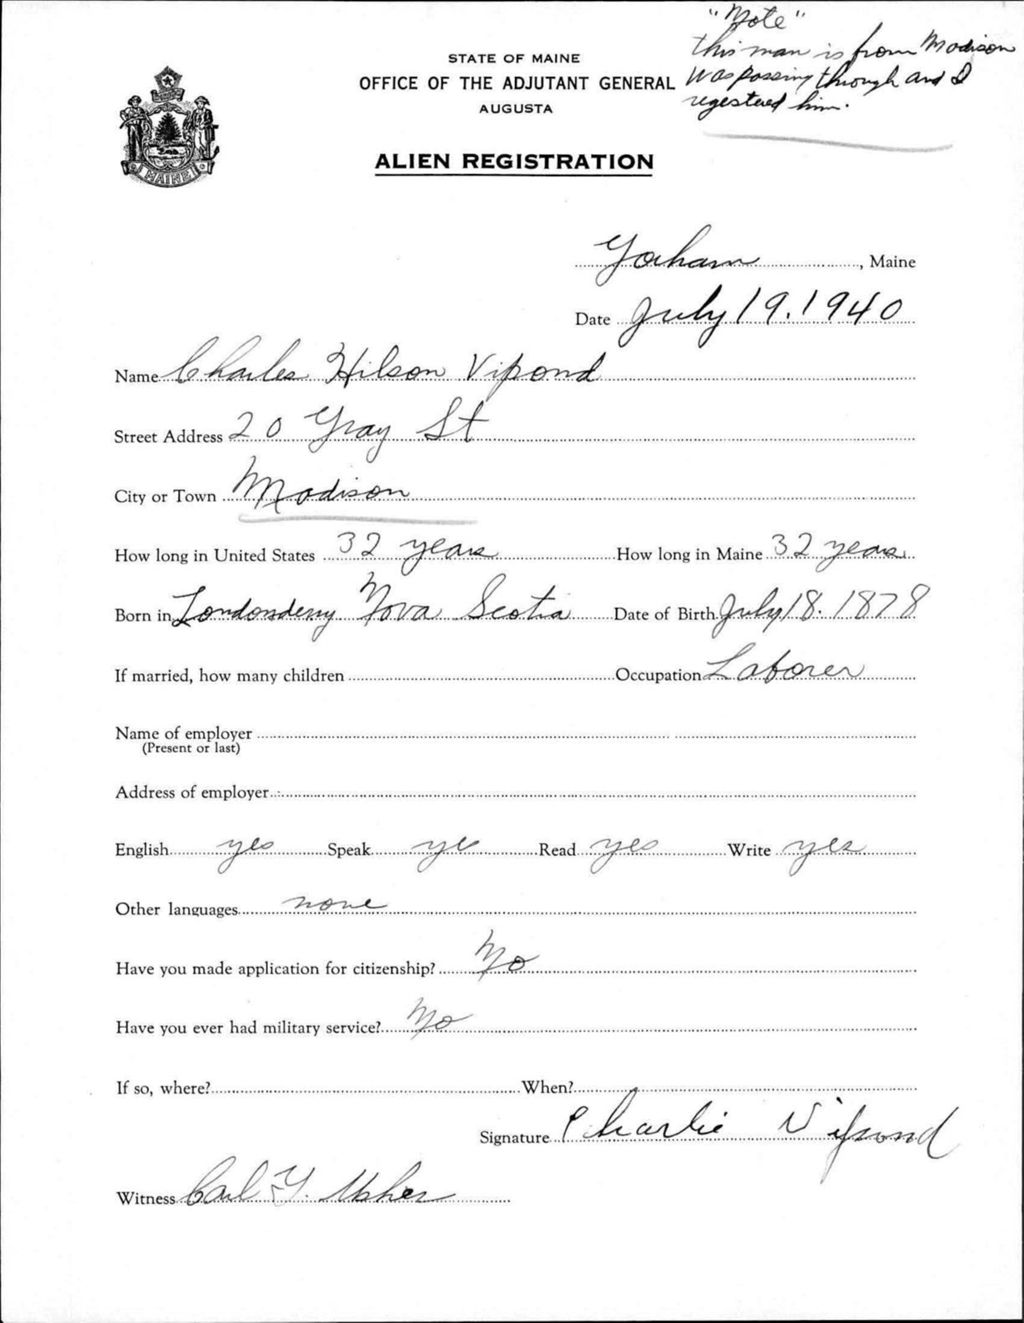 "Note"
this man is from Madison
Was passing through and I
regestered him.
STATE OF MAINE
OFFICE OF THE ADJUTANT GENERAL
AUGUSTA
MAINE
ALIEN REGISTRATION
Gorham, Maine
Date July 19. 1940
Name Charles Hilson Vipond
Street Address 20 Gray St
City or Town Madison
How long in United States 32 years How long in Maine 32 years
Born in Londonderry Nova Scotia Date of Birth July 18. 1878
If married, how many children Occupation Laborer
Name of employer
(Present or last)
Address of employer
English yes Speak yes Read yes Write yes
Other languages none
Have you made application for citizenship? No
Have you ever had military service? No
If so, where? When?
Signature Charlie Vipond
Witness Carl Y. Usher